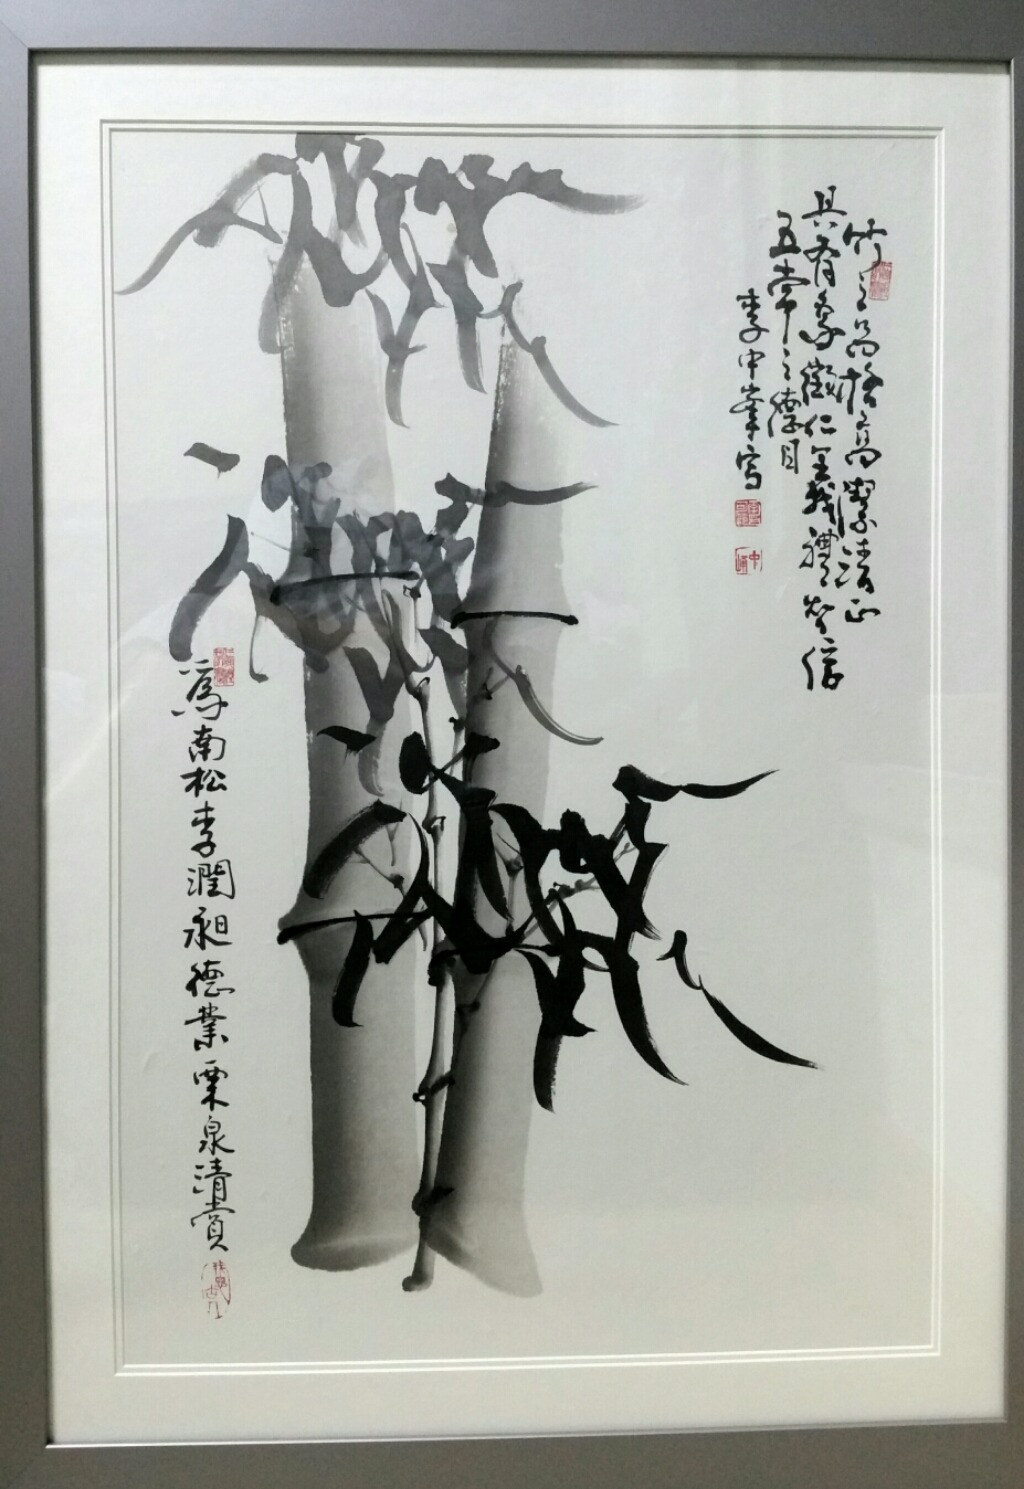 竹之品格高潔清正
具有象徵仁義禮智信
五常之德目
李中峯寫
爲南松李潤昶德業
栗泉清賞